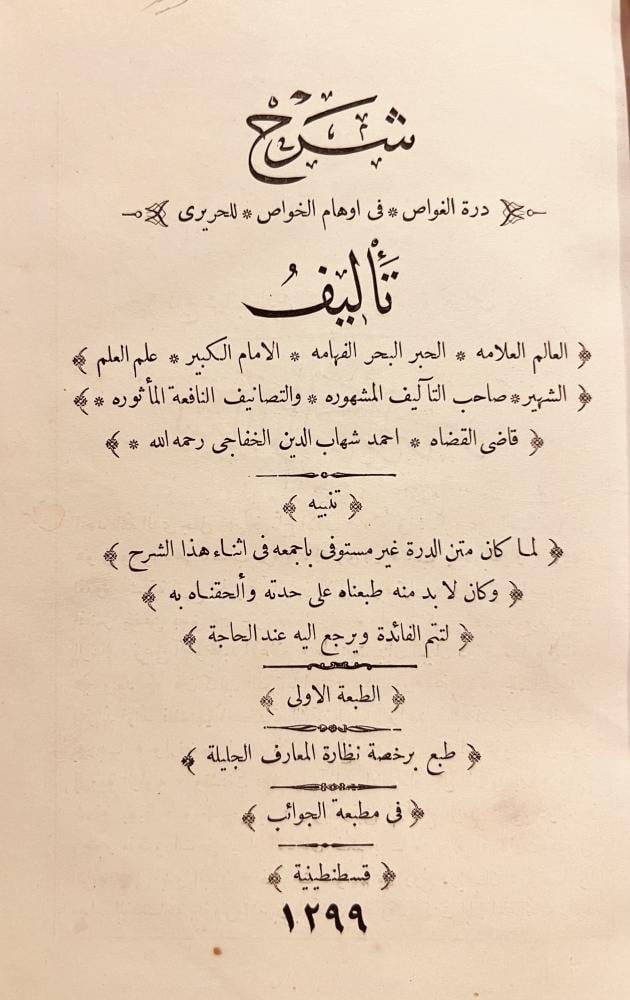 شرح
درة الغواص * فى اوهام الخواص * للحريرى
تأليف
العالم العلامه * الحبر البحر الفهامه * الامام الكبير * علم العلم
الشهير * صاحب التآليف المشهوره * والتصانيف النافعة المأثوره *
قاضى القضاه * احمد شهاب الدين الخفاجى رحمه الله *
تنبيه
لما كان متن الدرة غير مستوفى باجمعه فى اثناء هذا الشرح
وكان لا بد منه طبعناه على حدته وألحقناه به
لتتم الفائدة ويرجع اليه عند الحاجة
الطبعة الاولى
طبع برخصة نظارة المعارف الجليلة
فى مطبعة الجوائب
قسطنطينية
١٢٩٩